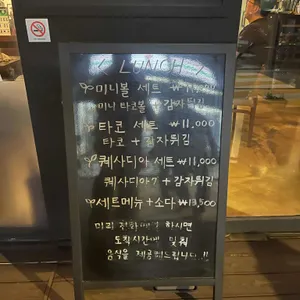 < LUNCH >
미니볼 세트 ₩11,000
미니 타코볼 + 감자튀김
타코 세트 ₩11,000
타코 + 감자튀김
퀘사디아 세트 ₩11,000
퀘사디아 + 감자튀김
세트메뉴 + 소다 ₩13,500
미리 전화 하시면
도착시간에 맞춰
음식을 제공해드립니다!!